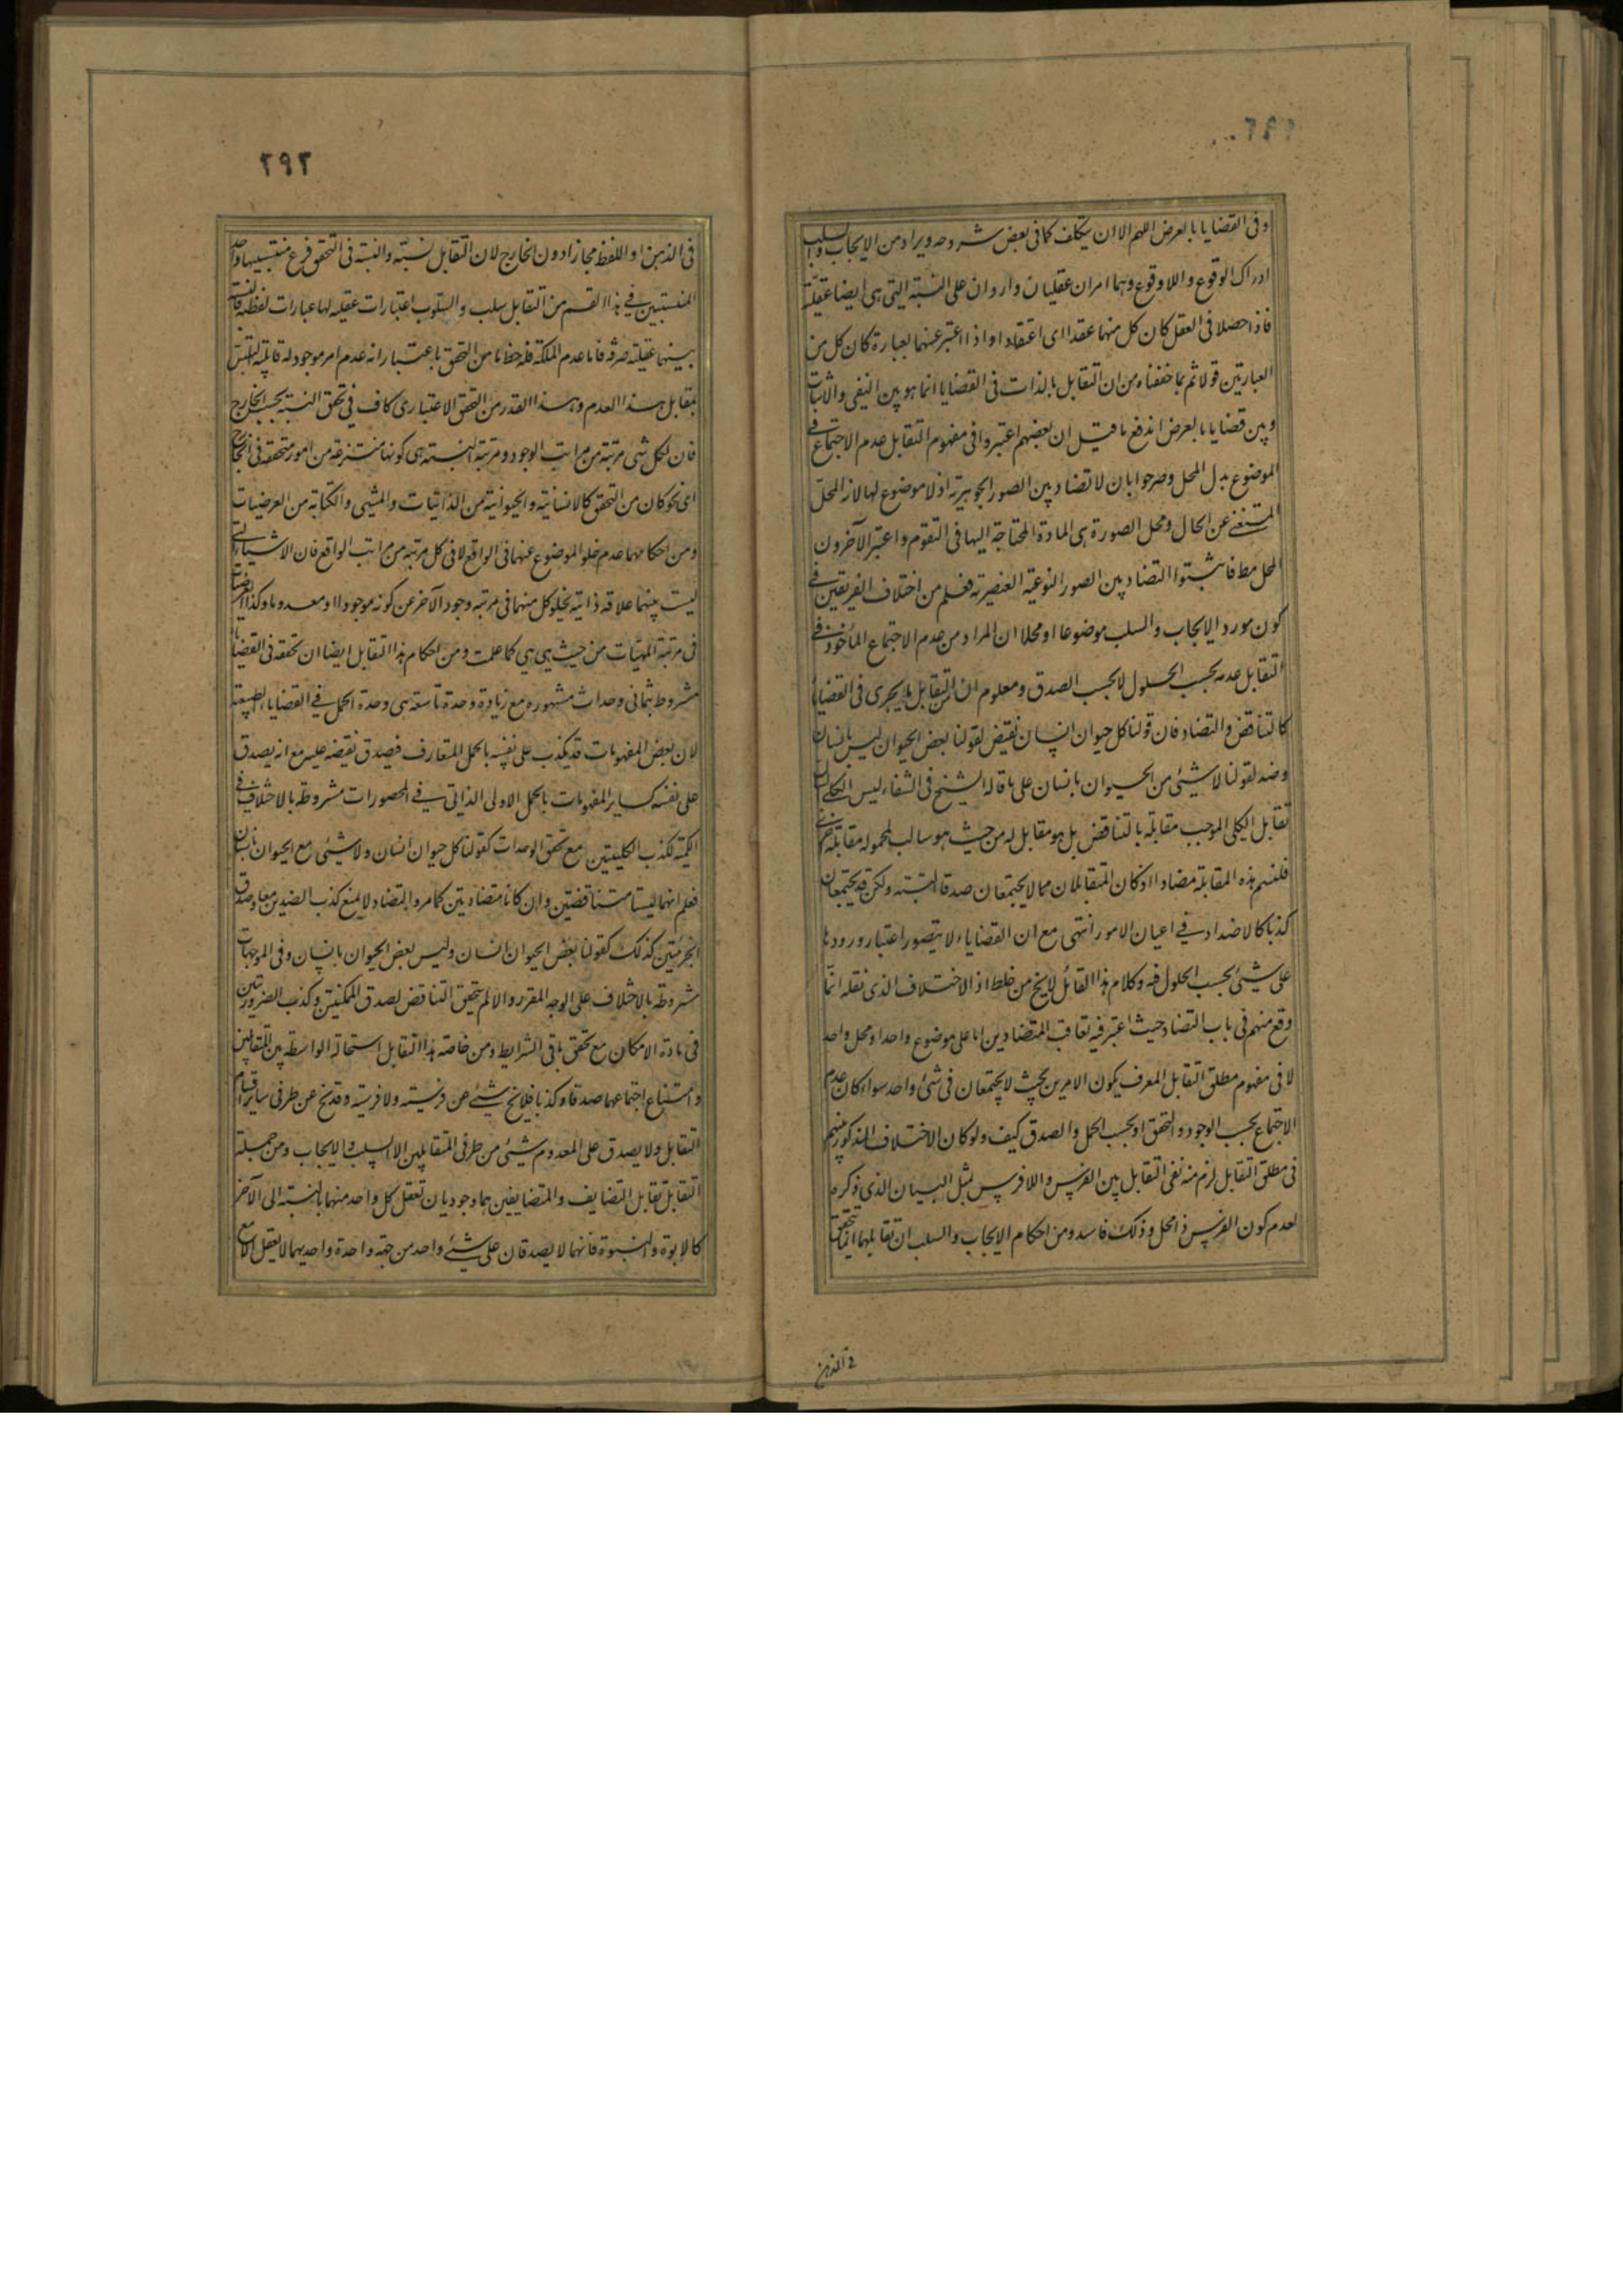 وفى القضايا بالعرض اللهم الا ان يتكلف كما فى بعض شروحه ويراد من الايجاب والسلب
ادراك الوقوع واللاوقوع وهما امران عقليان واردان على النسبة التى هى ايضا عقلية
فاذا حصلا فى العقل كان كل منهما عقدا اى اعتقادا واذا اعتبر عنهما بعبارة كان كل من
العبارتين قولا ثم بما حققناه من ان التقابل بالذات فى القضايا انما هو بين النفى والاثبات
وبين قضايا بالعرض اندفع ما قيل ان بعضهم اعتبروا فى مفهوم التقابل عدم الاجتماع فى
الموضوع بدل المحل وصرحوا بان لا تضاد بين الصور الجوهرية اذ لا موضوع لها لان المحل
المستغنى عن الحال ومحل الصورة هى المادة المحتاجة اليها فى التقوم واعتبر الآخرون
المحل مط فاثبتوا التضاد بين الصور النوعية العنصرية فعلم من اختلاف الفريقين فى
كون مورد الايجاب والسلب موضوعا او محلا ان المراد من عدم الاجتماع المأخوذ فى
التقابل عدمه بحسب الحلول لا بحسب الصدق ومعلوم ان من التقابل ما يجرى فى القضايا
كالتناقض والتضاد فان قولنا كل حيوان انسان نقيض لقولنا بعض الحيوان ليس بانسان
وضد لقولنا لا شيئ من الحيوان بانسان على ما قاله الشيخ فى الشفاء ليس الكلى السالب
تقابل الكلى الموجب مقابلة بالتناقض بل هو مقابل له من حيث هو سالب لمحموله مقابلة اخرى
فلنسم هذه المقابلة مضادا اذ كان المتقابلان مما لا يجتمعان صدقا البتة ولكن قد يجتمعان
كذبا كالاضداد فى اعيان الامور انتهى مع ان القضاياء لا يتصور اعتبار ورودها
على شيئ بحسب الحلول فيه وكلام هذا القائل لا يخ من خلط اذ الاختلاف الذى نقله انما
وقع منهم فى باب التضاد حيث اعتبر فيه تعاقب المتضادين اما على موضوع واحد او محل واحد
لا فى مفهوم مطلق التقابل المعرف بكون الامرين بحيث لا يجتمعان فى شئ واحد سواء كان عدم
الاجتماع بحسب الوجود والتحقق او بحسب الحمل والصدق كيف ولو كان الاختلاف المذكور منهم
فى مطلق التقابل لزم منه نفى التقابل بين الفرس واللافرس بمثل البيان الذى ذكره
لعدم كون الفرس ذا محل وذلك فاسد ومن احكام الايجاب والسلب ان تقابلهما انما يتحقق
فى الذهن
٢٩٢
فى الذهن او اللفظ مجازا دون الخارج لان التقابل نسبة والنسبة فى التحقق فرع منتسبيها واحد
المنتسبين فى هذا القسم من التقابل سلب والسلوب اعتبارات عقلية لها عبارات لفظية فالنسبة
بينهما عقلية صرفه فاما عدم الملكة فله حظ ما من التحقق باعتبار انه عدم امر موجود له قابلية التلبس
بمقابل هذا العدم وهذا القدر من التحقق الاعتبارى كاف فى تحقق النسبة بحسب الخارج
فان لكل شئ مرتبة من مراتب الوجود ومرتبة النسبة هى كونها منتزعة من امور متحققة فى الخارج
اى نحو كان من التحقق كالانسانية والحيوانية من الذاتيات والمشى والكتابة من العرضيات
ومن احكامهما عدم خلو الموضوع عنهما فى الواقع لا فى كل مرتبة من مراتب الواقع فان الاشياء التى
ليست بينهما علاقة ذاتية يخلو كل منهما فى مرتبه وجود الآخر عن كونه موجودا او معدوما وكذا العرضيات
فى مرتبة المهيات من حيث هى هى كما علمت ومن احكام هذا التقابل ايضا ان تحققه فى القضايا
مشروط بثمانى وحدات مشهوره مع زيادة وحدة تاسعة هى وحدة الحمل فى القضاياء الطبيعية
لان بعض المفهومات قد يكذب على نفسه بالحمل المتعارف فيصدق نقيضه عليه مع انه يصدق
على نفسه كساير المفهومات بالحمل الاولى الذاتى فى المحصورات مشروطة بالاختلاف فى
الكمية لكذب الكليتين مع تحقق الوحدات كقولنا كل حيوان انسان ولا شيئى مع الحيوان بانسان
فعلم انهما ليستا متناقضتين وان كانتا متضادتين كما مر والتضاد لا يمنع كذب الضدين معا وصدق
الجزئيتين كذلك كقولنا بعض الحيوان انسان وليس بعض الحيوان بانسان وفى الموجهات
مشروطة بالاختلاف على الوجه المقرر والا لم يتحقق التناقض لصدق الممكنتين وكذب الضروريتين
فى مادة الامكان مع تحقق باقى الشرايط ومن خاصة هذا التقابل استحالة الواسطة بين المتقابلين
وامتناع اجتماعهما صدقا وكذبا فلا يخ شيئ عن فرسيته ولا فرسية وقد يخ عن طرفى ساير اقسام
التقابل ولا يصدق على المعدوم شيئى من طرفى المتقابلين الا السلب والايجاب ومن جملة
التقابل تقابل التضايف والمتضايفين هما وجوديان تعقل كل واحد منهما بالنسبة الى الآخر
كالابوة والبنوة فانهما لا يصدقان على شيئ واحد من جهة واحدة واحديهما لا يعقل الا مع